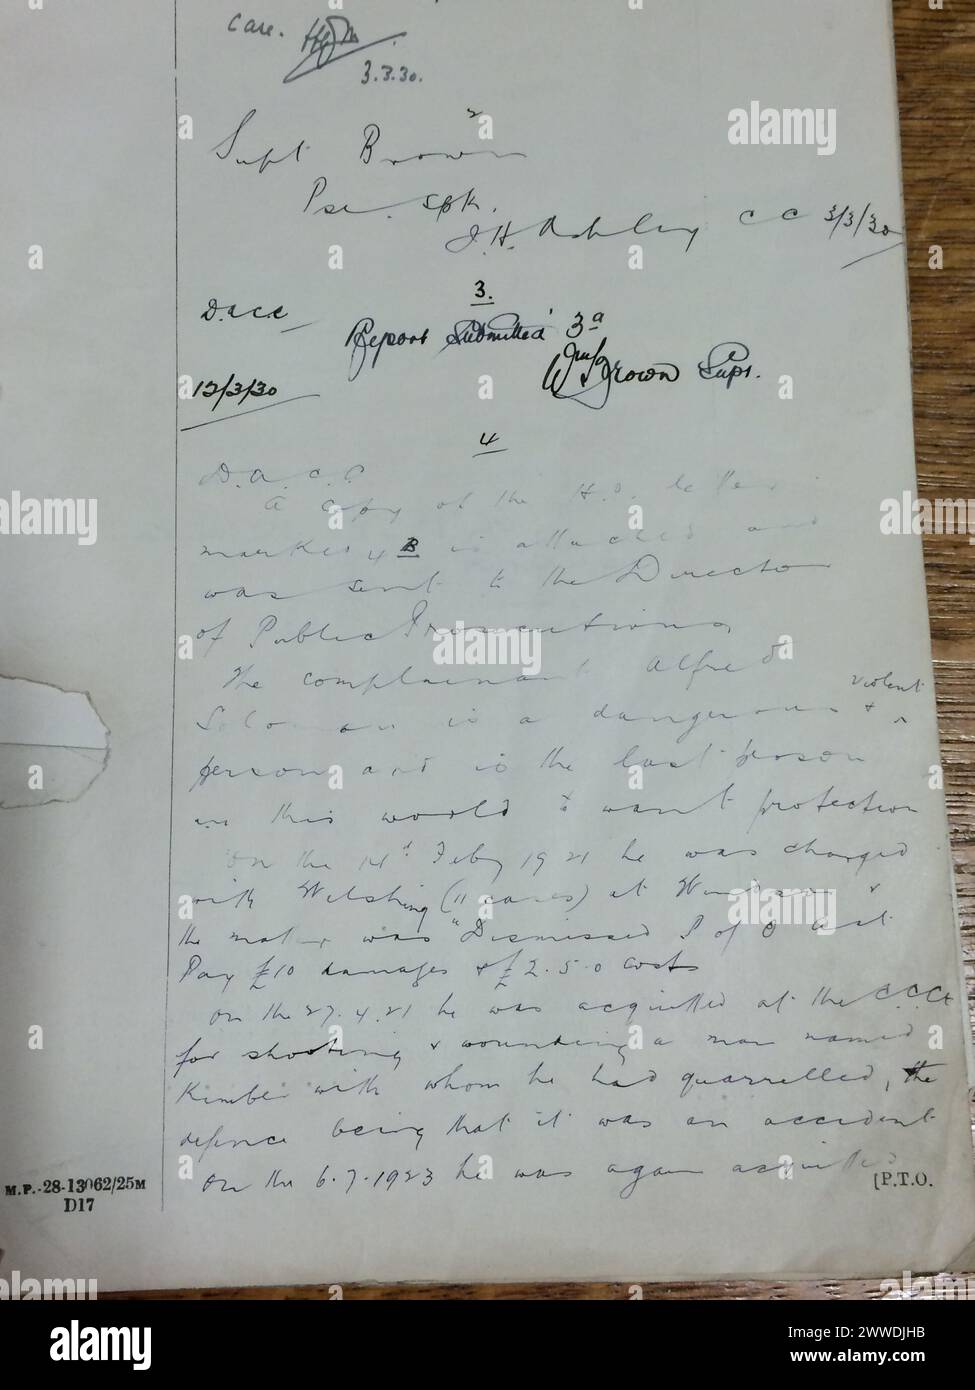 care.
3.3.30.
2
Supt Brown
Pse. spk.
J.H. Ashley C C 3/3/30
3.
D.a.c.c
Report Submitted 3a
Wm Brown Supt.
12/3/30
4
D.a.c.c
A copy of the H.O. letter
marked 4 B is attached and
was sent to the Director
of Public Prosecutions
The complainant Alfred
violent
Soloman is a dangerous + ^
person and is the last person
in this world to want protection
On the 14th Feby 1921 he was charged
with Welshing (11 cases) at Windsor +
the matter was "Dismissed P of O Act
Pay £10 damages + £2.5.0 costs
On the 27.4.21 he was acquitted at the C.C.Ct
for shooting + wounding a man named
Kimber with whom he had quarrelled, the
defence being that it was an accident
On the 6.7.1923 he was again acquitted
M.P.-28-13062/25M
D17
[P.T.O.
alamy
Image ID: 2WWDJHB
www.alamy.com